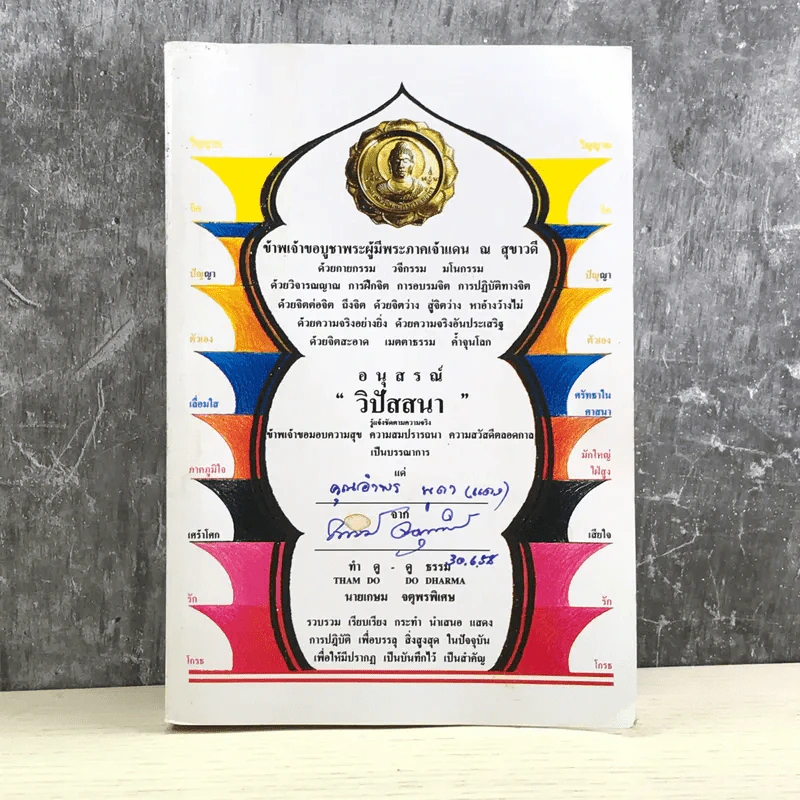 วิญญาณ
วิญญาณ
จิต
จิต
ข้าพเจ้าขอบูชาพระผู้มีพระภาคเจ้าแดน ณ สุขาวดี
ด้วยกายกรรม วจีกรรม มโนกรรม
ปัญญา
ปัญญา
ด้วยวิจารณญาณ การฝึกจิต การอบรมจิต การปฏิบัติทางจิต
ด้วยจิตต่อจิต ถึงจิต ด้วยจิตว่าง สู่จิตว่าง หาอ้างว้างไม่
ด้วยความจริงอย่างยิ่ง ด้วยความจริงอันประเสริฐ
ตัวเอง
ตัวเอง
ด้วยจิตสะอาด เมตตาธรรม ค้ำจุนโลก
อนุสรณ์
" วิปัสสนา "
เลื่อมใส
ศรัทธาใน
ศาสนา
รู้แจ้งชัดตามความจริง
ข้าพเจ้าขอมอบความสุข ความสมปรารถนา ความสวัสดีตลอดกาล
เป็นบรรณาการ
ภาคภูมิใจ
มักใหญ่
ใฝ่สูง
แด่
คุณอำพร (แดง)
จาก
เศร้าโศก
เสียใจ
30.6.58
ทำ ดู - ดู ธรรม
THAM DO DO DHARMA
นายเกษม จตุพรพิเศษ
รัก
รัก
รวบรวม เรียบเรียง กระทำ นำเสนอ แสดง
การปฏิบัติ เพื่อบรรลุ สิ่งสูงสุด ในปัจจุบัน
เพื่อให้มีปรากฏ เป็นบันทึกไว้ เป็นสำคัญ
โกรธ
โกรธ